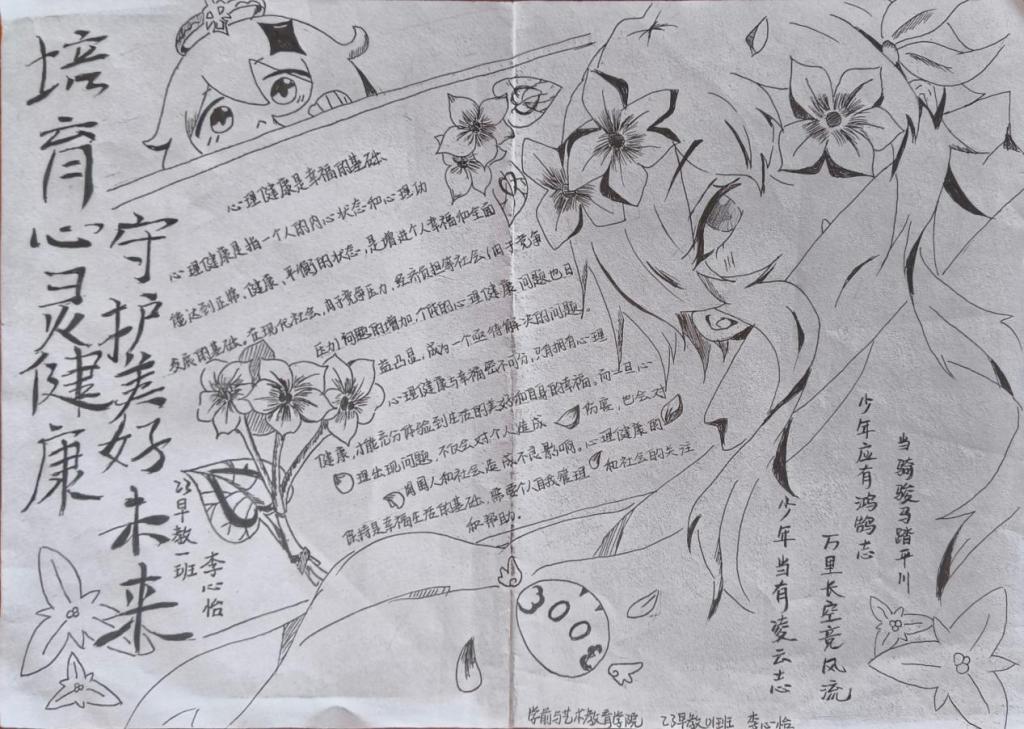 培育心灵健康
守护美好未来
23早教一班
李心怡
心理健康是幸福的基础
心理健康是指一个人的内心状态和心理功
能达到正常、健康、平衡的状态,是增进个人幸福和全面
发展的基础。在现代社会,由于竞争压力,经济负担等社会(由于竞争
压力)问题的增加,个体的心理健康问题也日
益凸显,成为一个亟待解决的问题。
心理健康与幸福密不可分,只有拥有心理
健康,才能充分体验到生活的美好和自身的幸福。而一旦心
理出现问题,不仅会对个人造成伤害,也会对
周围人和社会造成不良影响。心理健康的
保持是幸福生活的基础,需要个人自我管理和社会的关注
和帮助。
少年应有鸿鹄志
当骑骏马踏平川
少年当有凌云志
万里长空竞风流
3008
学前与艺术教育学院 23早教01班 李心怡